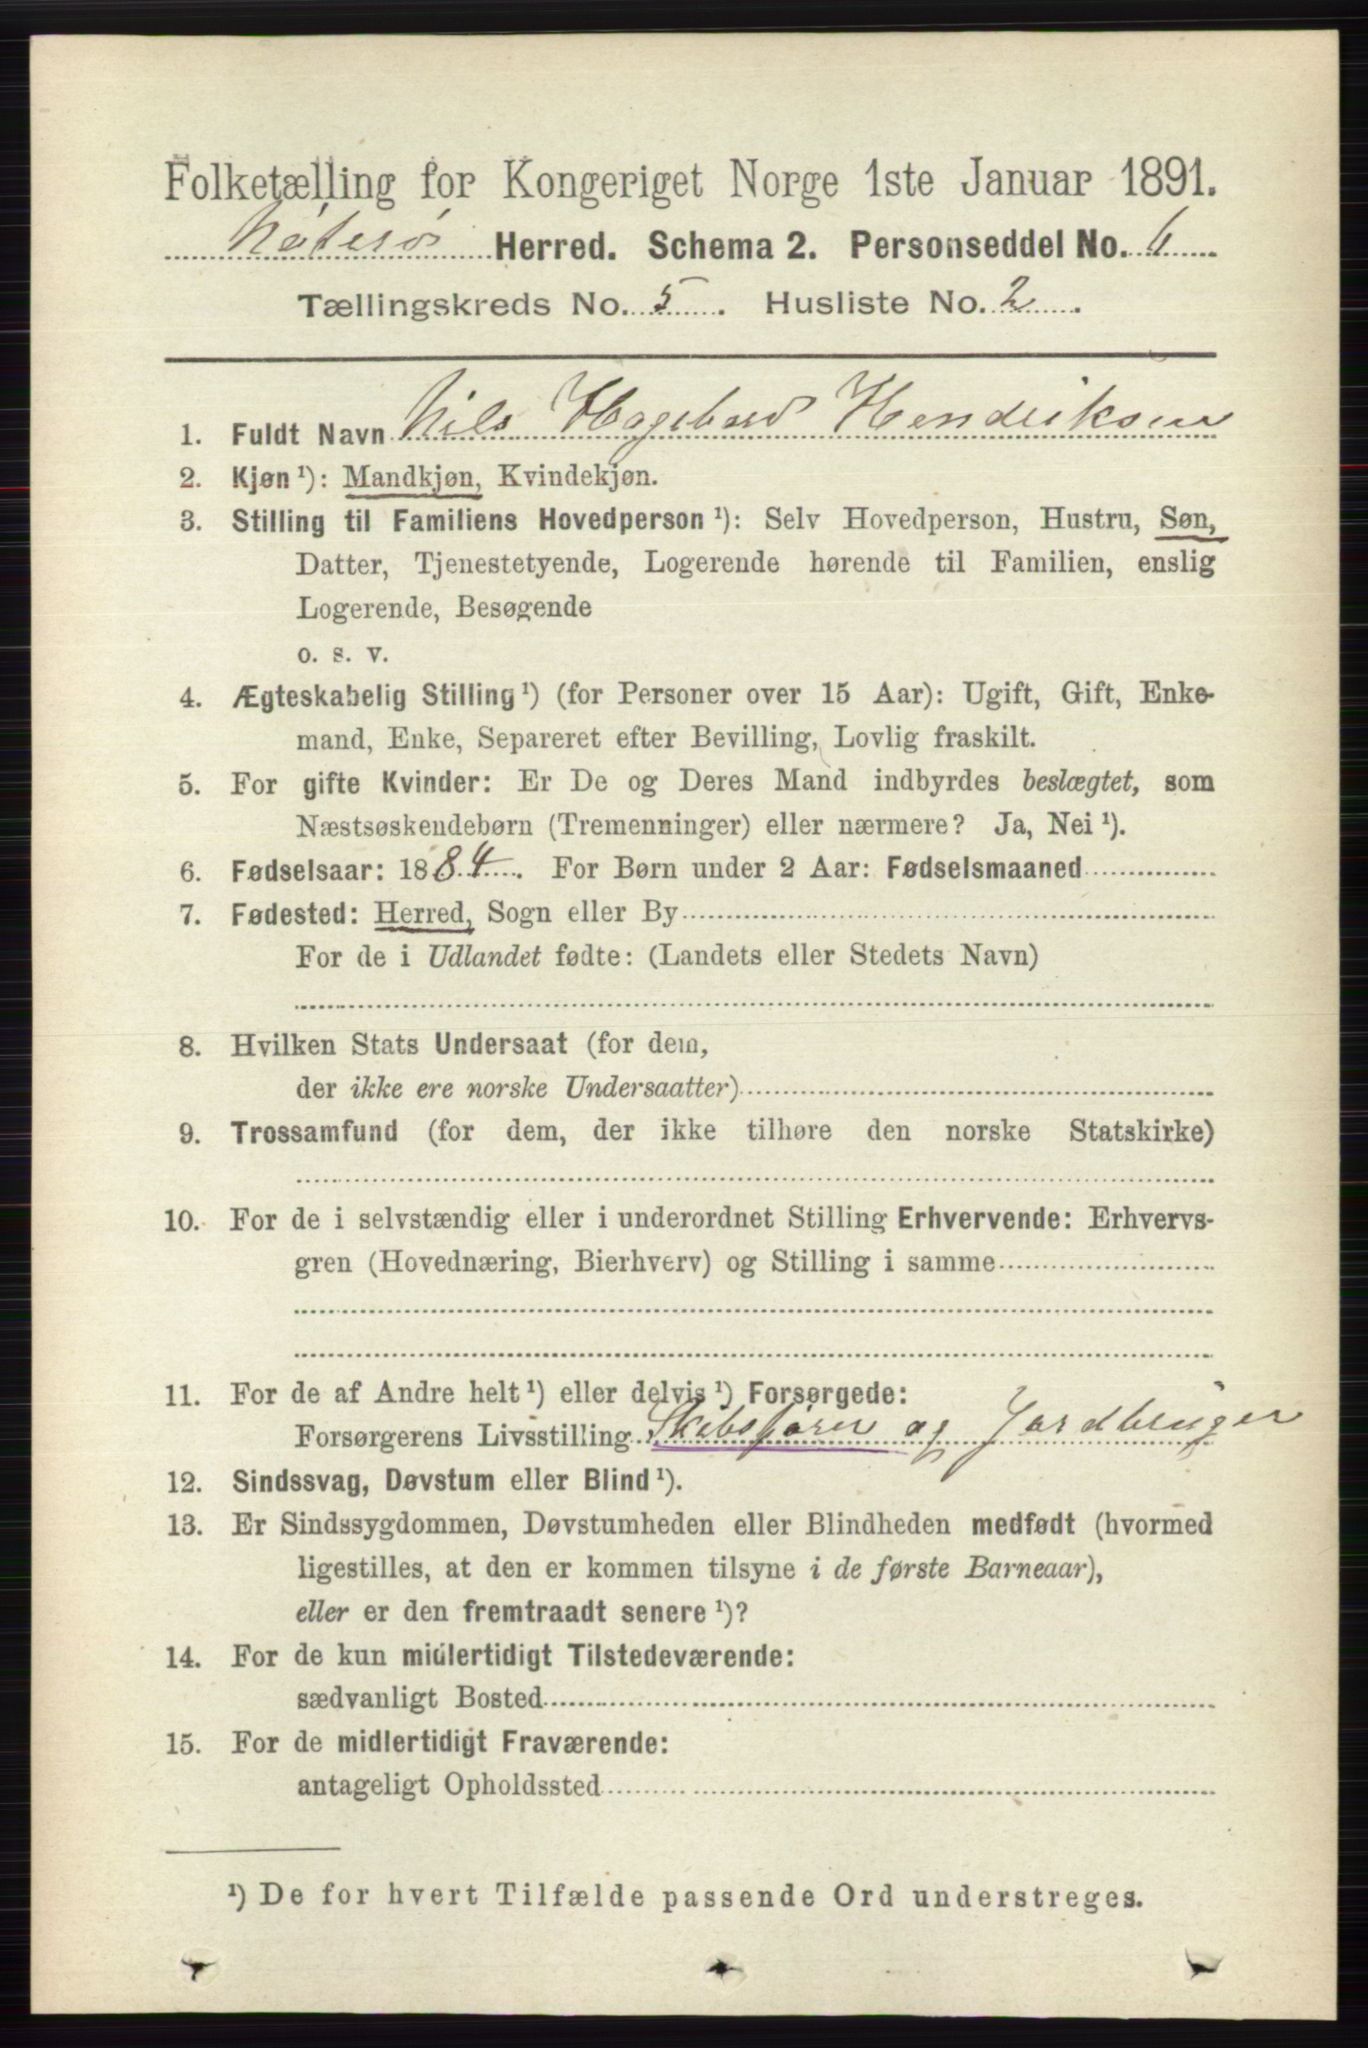 Folketælling for Kongeriget Norge 1ste Januar 1891.
Nøterø Herred. Schema 2. Personseddel No. 6
Tællingskreds No. 5. Husliste No. 2.
1. Fuldt Navn Nils Hagebard Hendriksen
2. Kjøn ¹): Mandkjøn, Kvindekjøn.
3. Stilling til Familiens Hovedperson ¹): Selv Hovedperson, Hustru, Søn,
Datter, Tjenestetyende, Logerende hørende til Familien, enslig
Logerende, Besøgende
o. s. v.
4. Ægteskabelig Stilling ¹) (for Personer over 15 Aar): Ugift, Gift, Enke-
mand, Enke, Separeret efter Bevilling, Lovlig fraskilt.
5. For gifte Kvinder: Er De og Deres Mand indbyrdes beslægtet, som
Næstsøskendebørn (Tremenninger) eller nærmere? Ja, Nei ¹).
6. Fødselsaar: 1884. For Børn under 2 Aar: Fødselsmaaned
7. Fødested: Herred, Sogn eller By
For de i Udlandet fødte: (Landets eller Stedets Navn)
8. Hvilken Stats Undersaat (for dem,
der ikke ere norske Undersaatter)
9. Trossamfund (for dem, der ikke tilhøre den norske Statskirke)
10. For de i selvstændig eller i underordnet Stilling Erhvervende: Erhvervs-
gren (Hovednæring, Bierhverv) og Stilling i samme
11. For de af Andre helt ¹) eller delvis ¹) Forsørgede:
Forsørgerens Livsstilling Skibsfører og Jordbruger
12. Sindssvag, Døvstum eller Blind ¹).
13. Er Sindssygdommen, Døvstumheden eller Blindheden medfødt (hvormed
ligestilles, at den er kommen tilsyne i de første Barneaar),
eller er den fremtraadt senere ¹)?
14. For de kun midlertidigt Tilstedeværende:
sædvanligt Bosted
15. For de midlertidigt Fraværende:
antageligt Opholdssted
¹) De for hvert Tilfælde passende Ord understreges.